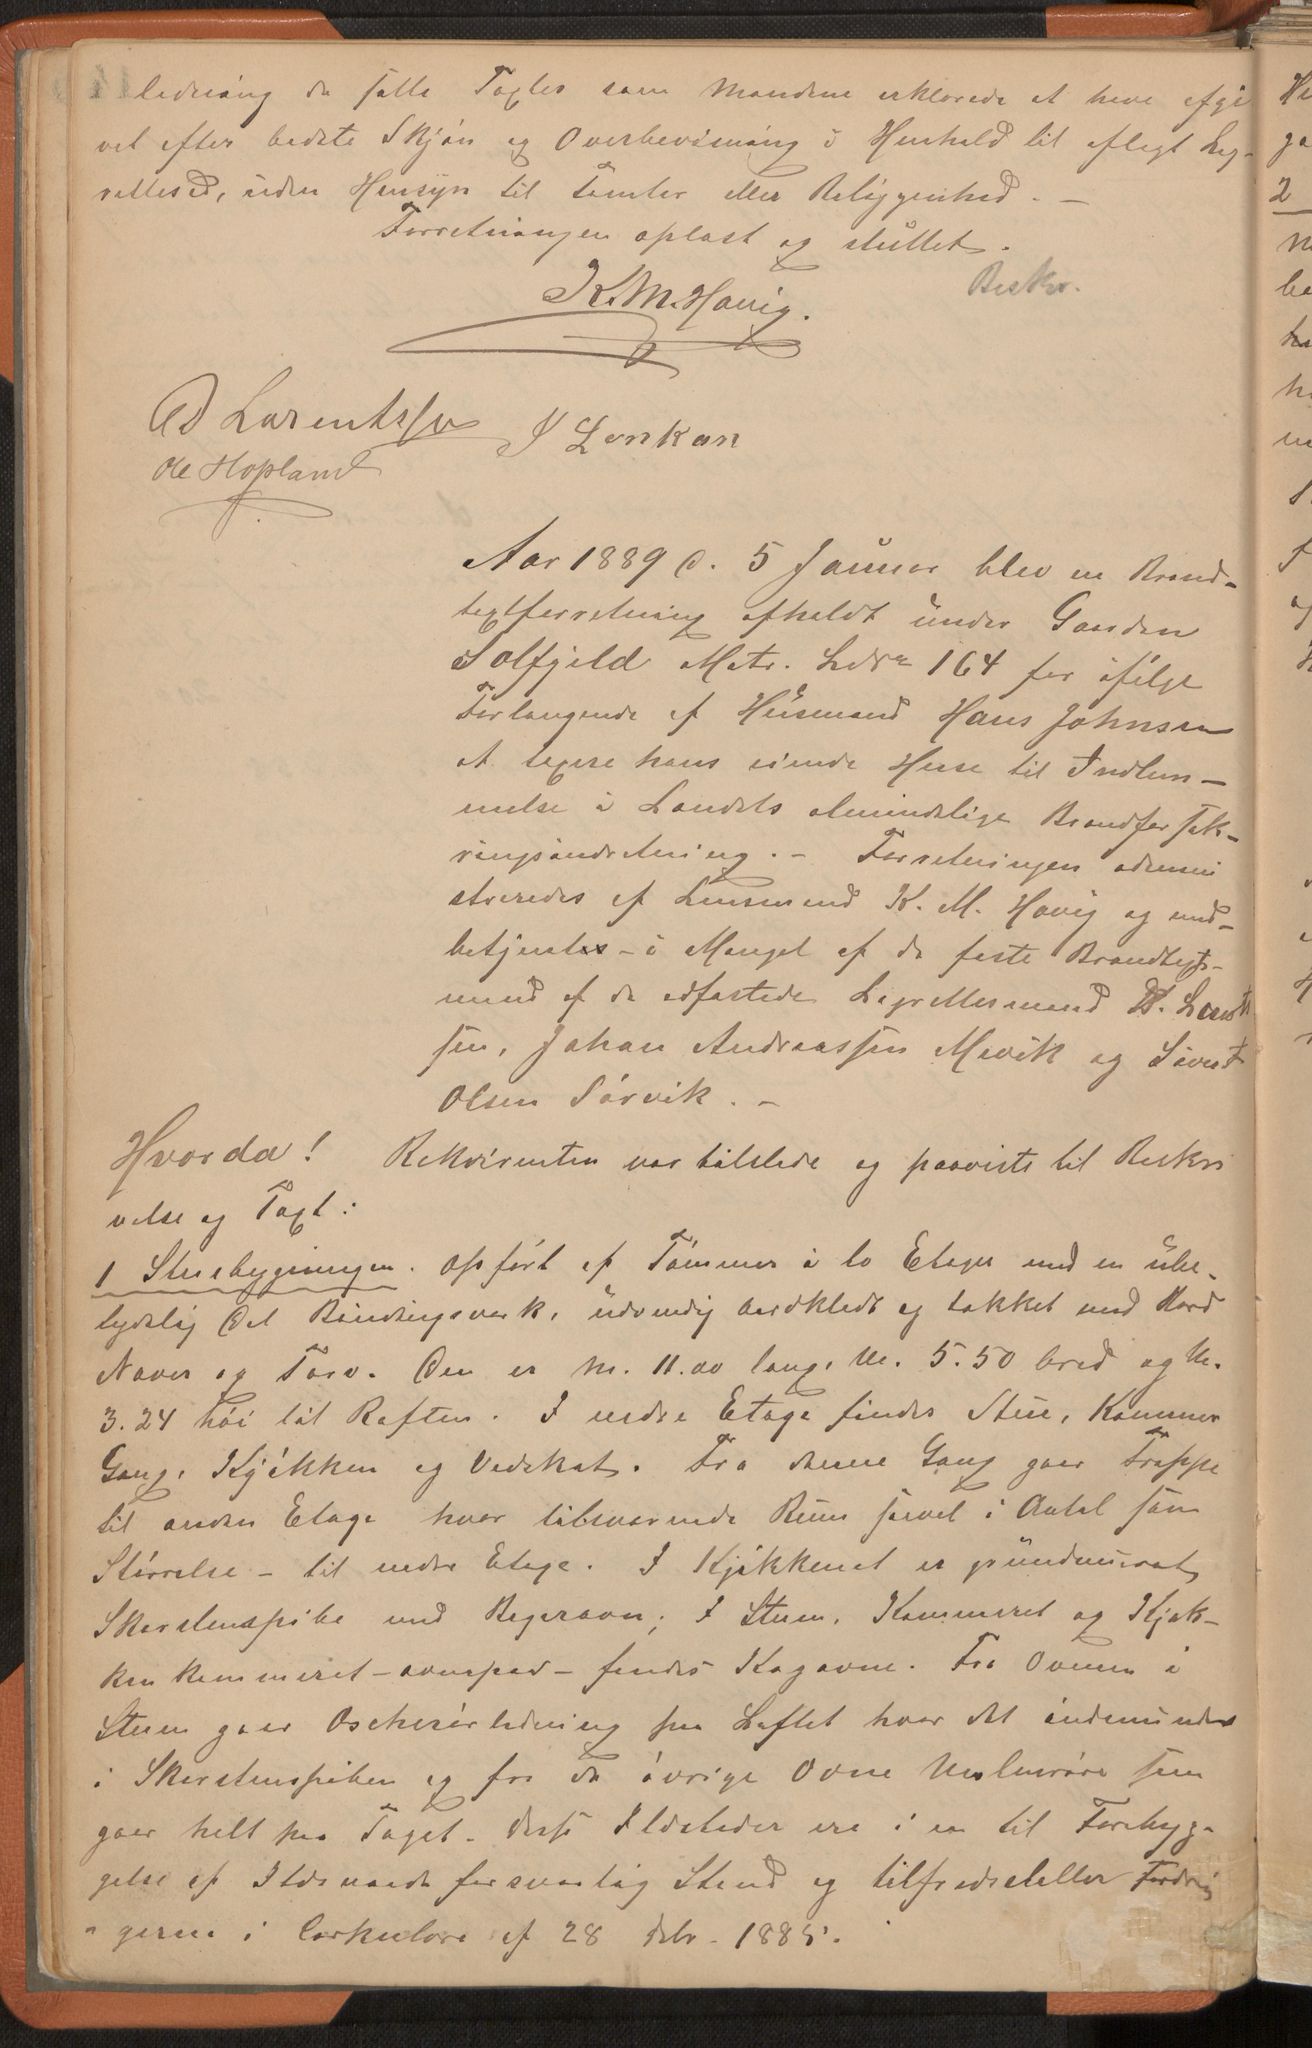 ledning de satte Taxter som Mændene erklærede at have afgi
vet efter bedste Skjøn og Overbevisning i Henhold til aflagt Lag-
rettesed, uden Hensyn til Tomter eller Beliggenhed. -
Forretningen oplæst og sluttet.
Beskr.
K. M. Havig.
Ad Larentssen J Lenkan
Ole Hopland
Aar 1889 d. 5 Januar blev en Brand-
taxtforretning afholdt under Gaarden
Solfjeld Matr. Lbnr 164 for ifølge
Forlangende af Husmand Hans Johnsen
at taxere hans eiende Huse til Indlem-
melse i Landets almindelige Brandforsik-
ringsindretning. - Forretningen admini
streredes af Lensmand K. M. Havig og med-
betjentes - i Mangel af de faste Brandtaxt-
mænd af de edfæstede Lagrettesmænd A. Larents
sen, Johan Andreassen Mevik og Sivert
Olsen Sørvik. -
Hvorda! Rekvirenten var tilstede og paaviste til Beskri
velse og Taxt:
1 Stuebygningen. Opført af Tømmer i to Etager med en ube-
tydelig Del Bindingsverk, udvendig bordklædt og tækket med Bord
Næver og Torv. Den er M. 11.00 lang, M. 5.50 bred og M.
3.24 høi til Raften. I nedre Etage findes Stue, Kammer
Gang, Kjøkken og Vedskot. Fra denne Gang gaar Trappe
til anden Etage hvor tilsvarende Rum saavel i Antal som
Størrelse - til nedre Etage. I Kjøkkenet er grundmuret
Skorstenspibe med Bagerovn; I Stuen, Kammeret og Kjøk-
ken kammeret - ovenpaa - findes Kogovne. Fra Ovnen i
Stuen gaar rørledning paa Loftet hvor det indmunder
i Skorstenspiben og fra de øvrige Ovne rør som
gaar helt paa Taget. Disse Ildsteder ere i en til Forebyg-
gelse af Ildsvaade forsvarlig Stand og tilfredsstiller Fordrin
gerne i Cirkulære af 28 Febr. 1885.